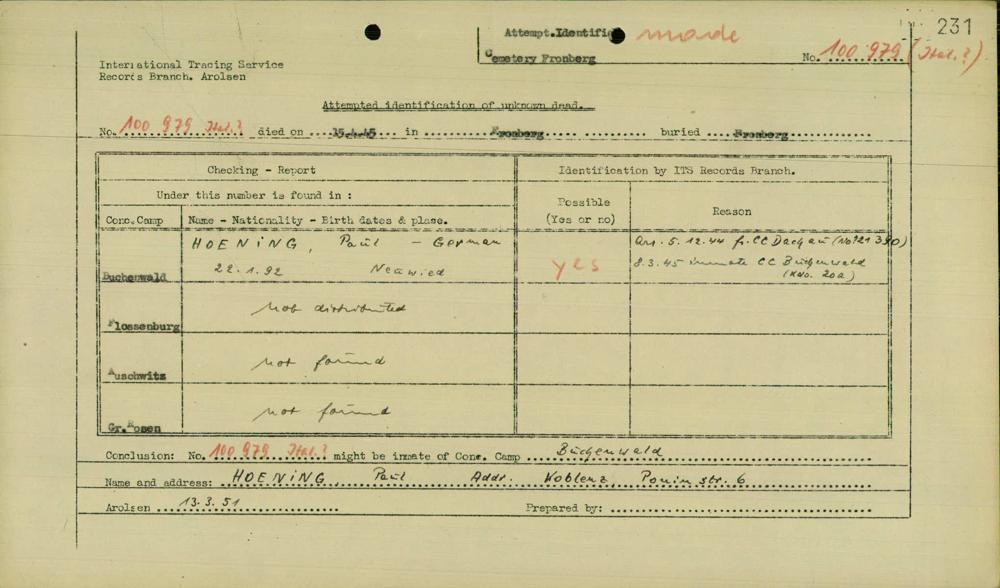 231
Attempt.Identific made
Cemetery Fronberg
No. 100 979 (Ital.?)
International Tracing Service
Records Branch. Arolsen
Attempted identification of unknown dead.
No. 100 979 Ital.? died on 15.4.45 in Fronberg buried Fronberg
Checking - Report
Identification by ITS Records Branch.
Under this number is found in :
Possible
(Yes or no)
Reason
Conc.Camp
Name - Nationality - Birth dates & place.
HOENING, Paul - German
Arr. 5.12.44 fr. CC Dachau (No
Buchenwald
22.1.92 Neuwied
yes
8.3.45 inmate CC Buchenwald
(Kdo. 20a)
Flossenburg
not distributed
Auschwitz
not found
Gr.Rosen
not found
Conclusion: No. 100 979 Ital.? might be inmate of Conc. Camp Buchenwald
Name and address: HOENING, Paul Addr. Koblenz, str. 6
Arolsen 13.3.51
Prepared by: